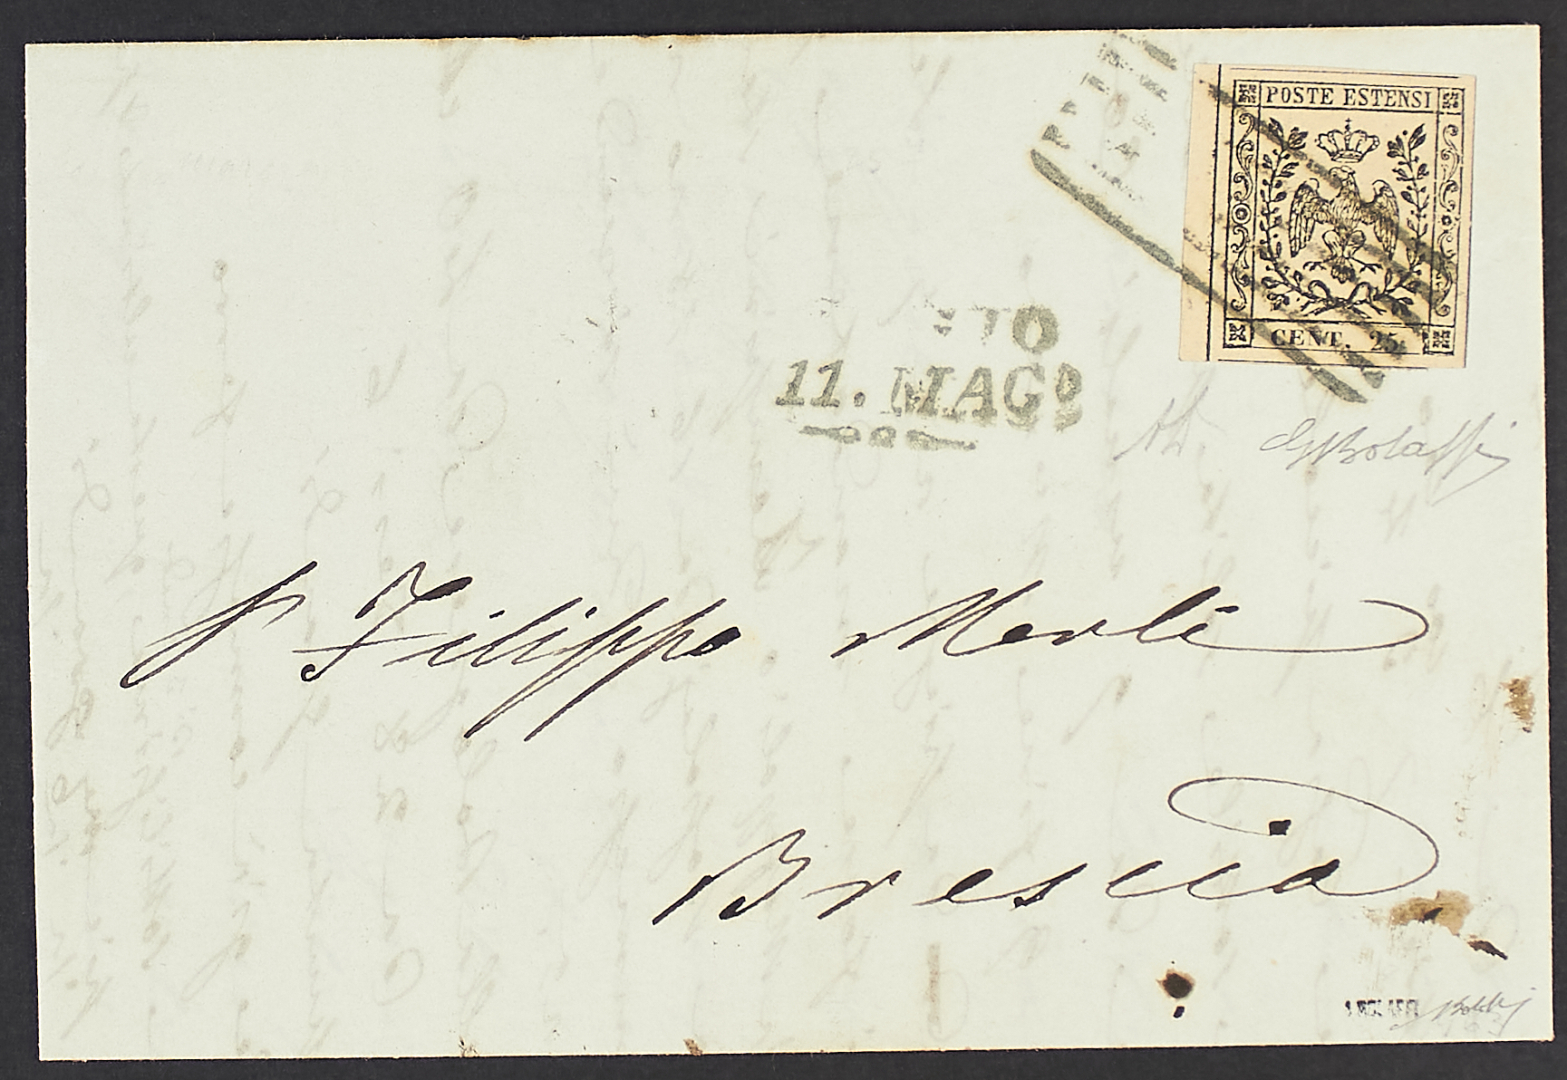 POSTE ESTENSI
CENT. 25
11. MAGº
Bolaffi
Filippo Merli
Brescia